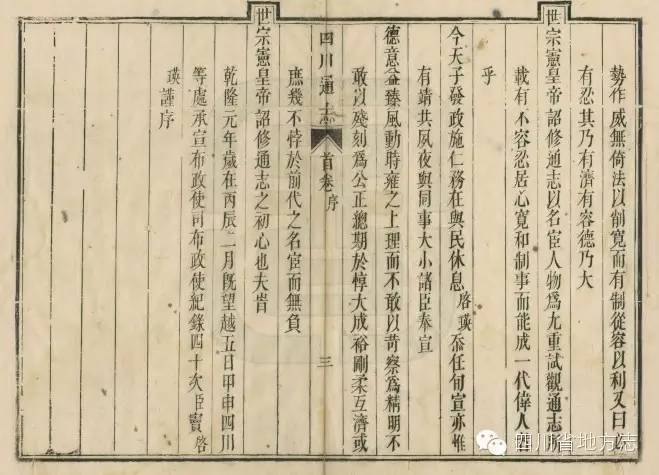 勢作威無倚法以削寬而有制從容以和又曰必
有忍其乃有濟有容德乃大
世宗憲皇帝詔修通志以名宦人物爲尤重試觀通志所
載有不容忍居心寬和制事而能成一代偉人
乎
今天子發政施仁務在與民休息啓瑛忝任旬宣亦惟
有靖共夙夜與同事大小諸臣奉宣
德意益臻風動時雍之上理而不敢以苛察爲精明不
四川通志 首卷 序 三
敢以殘刻爲公正總期於惇大成裕剛柔互濟或
庶幾不悖於前代之名宦而無負
世宗憲皇帝詔修通志之初心也夫旹
乾隆元年歲在丙辰二月既望越五日甲申四川
等處承宣布政使司布政使紀錄四十次臣竇啓
瑛謹序
四川省地方志